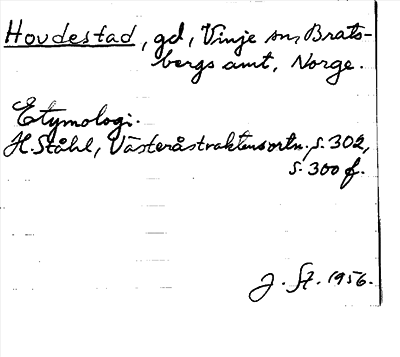 Hovdestad, gd, Vinje sn, Brats-
bergs amt, Norge.
Etymologi.
H. Ståhl, Västeråstraktens ortn., s. 302,
s. 300 f.
J. St. 1956.